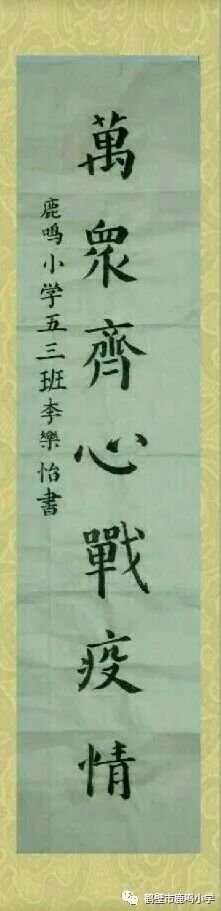 萬眾齊心戰疫情
鹿鸣小学五三班李樂怡書
鹤壁市鹿鸣小学